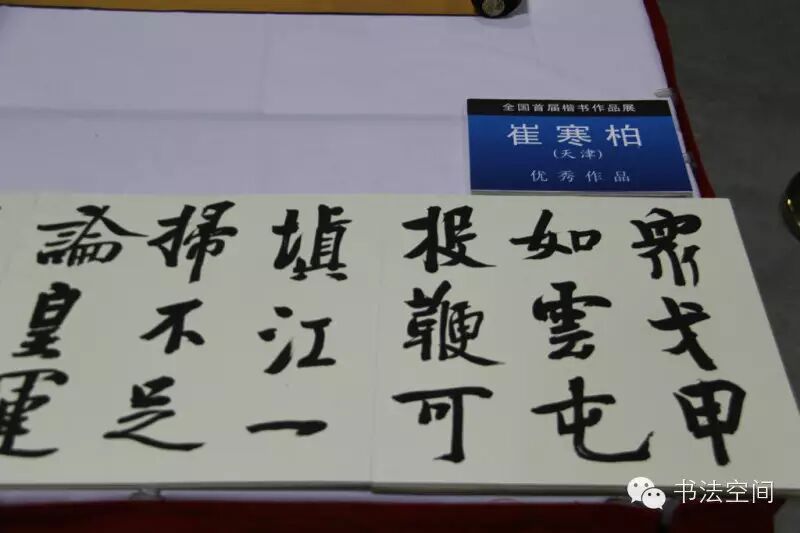 全国首届楷书作品展
崔寒柏
(天津)
优秀作品
衆戈甲
如雲屯
投鞭可
填江一
掃不足
論皇運
书法空间